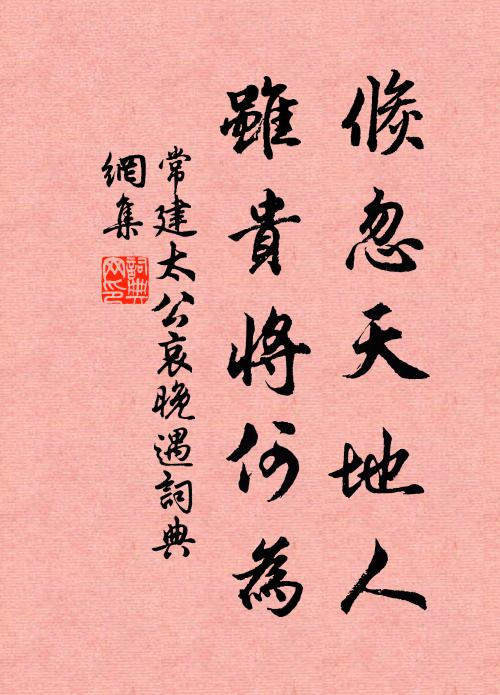 倏忽天地人
雖貴將何為
常建太公哀晚遇詞典
網集
詞典網印